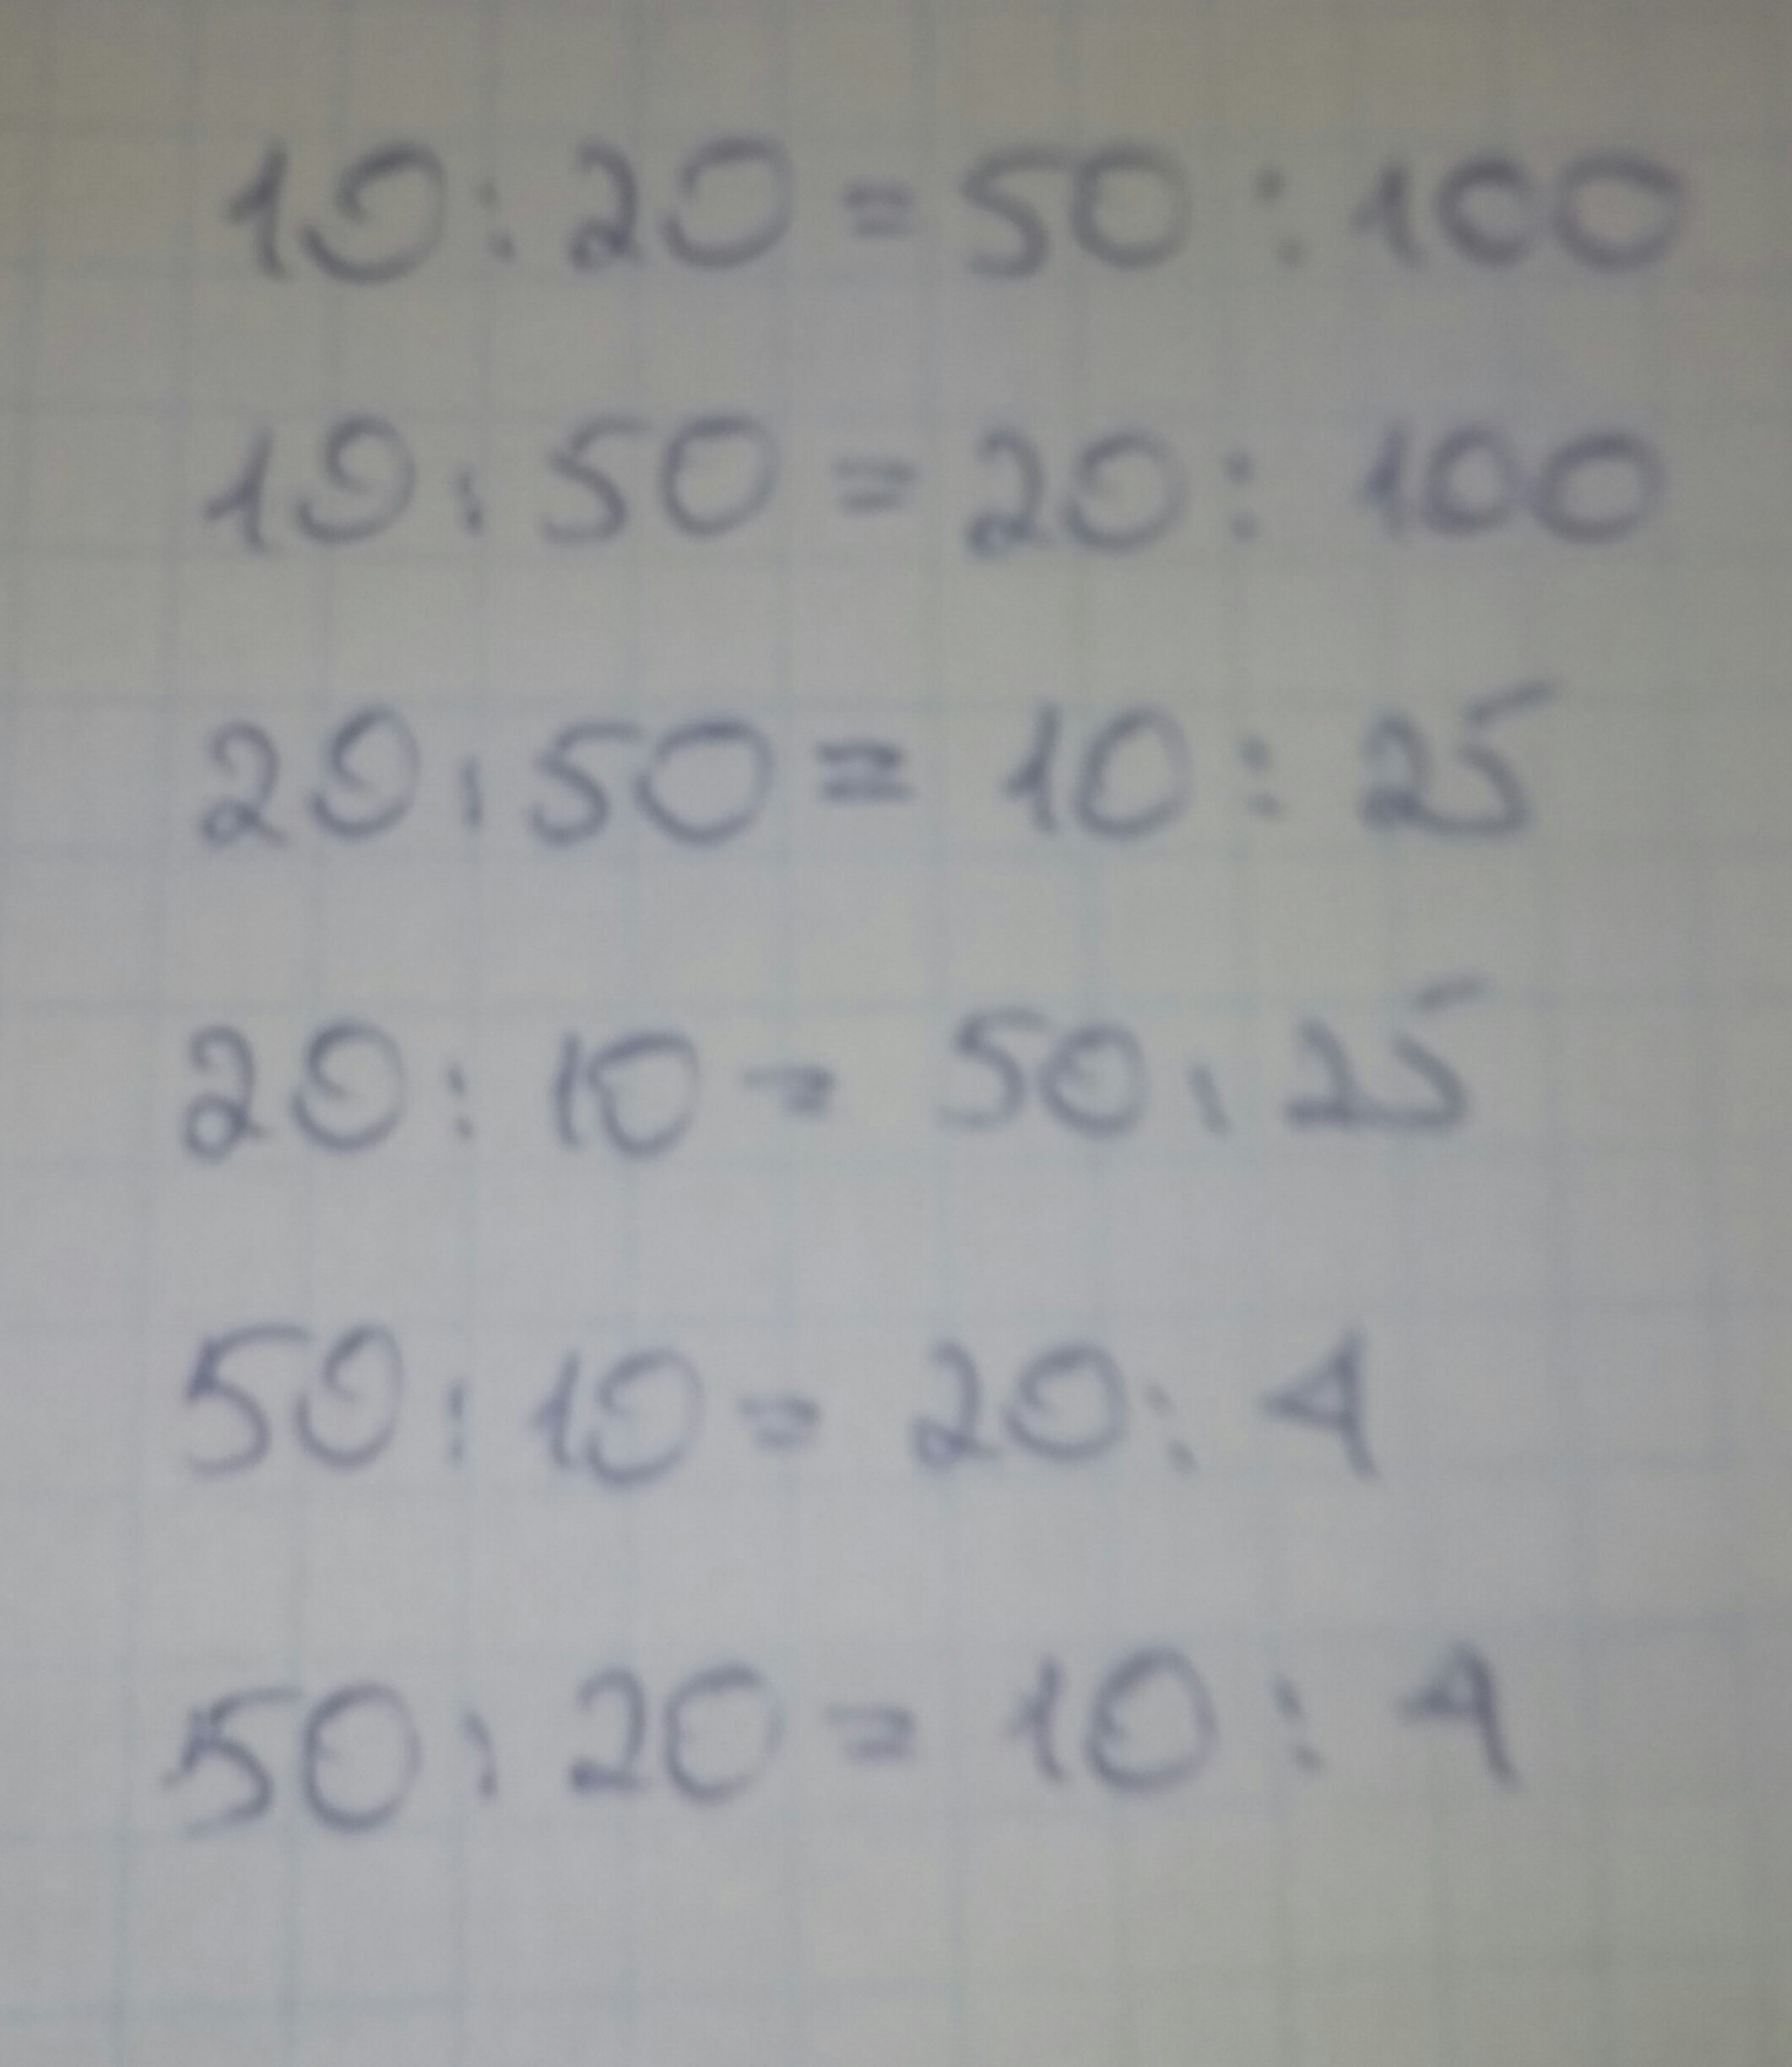 10 : 20 = 50 : 100
10 : 50 = 20 : 100
20 : 50 = 10 : 25
20 : 10 = 50 : 25
50 : 10 = 20 : 4
50 : 20 = 10 : 4